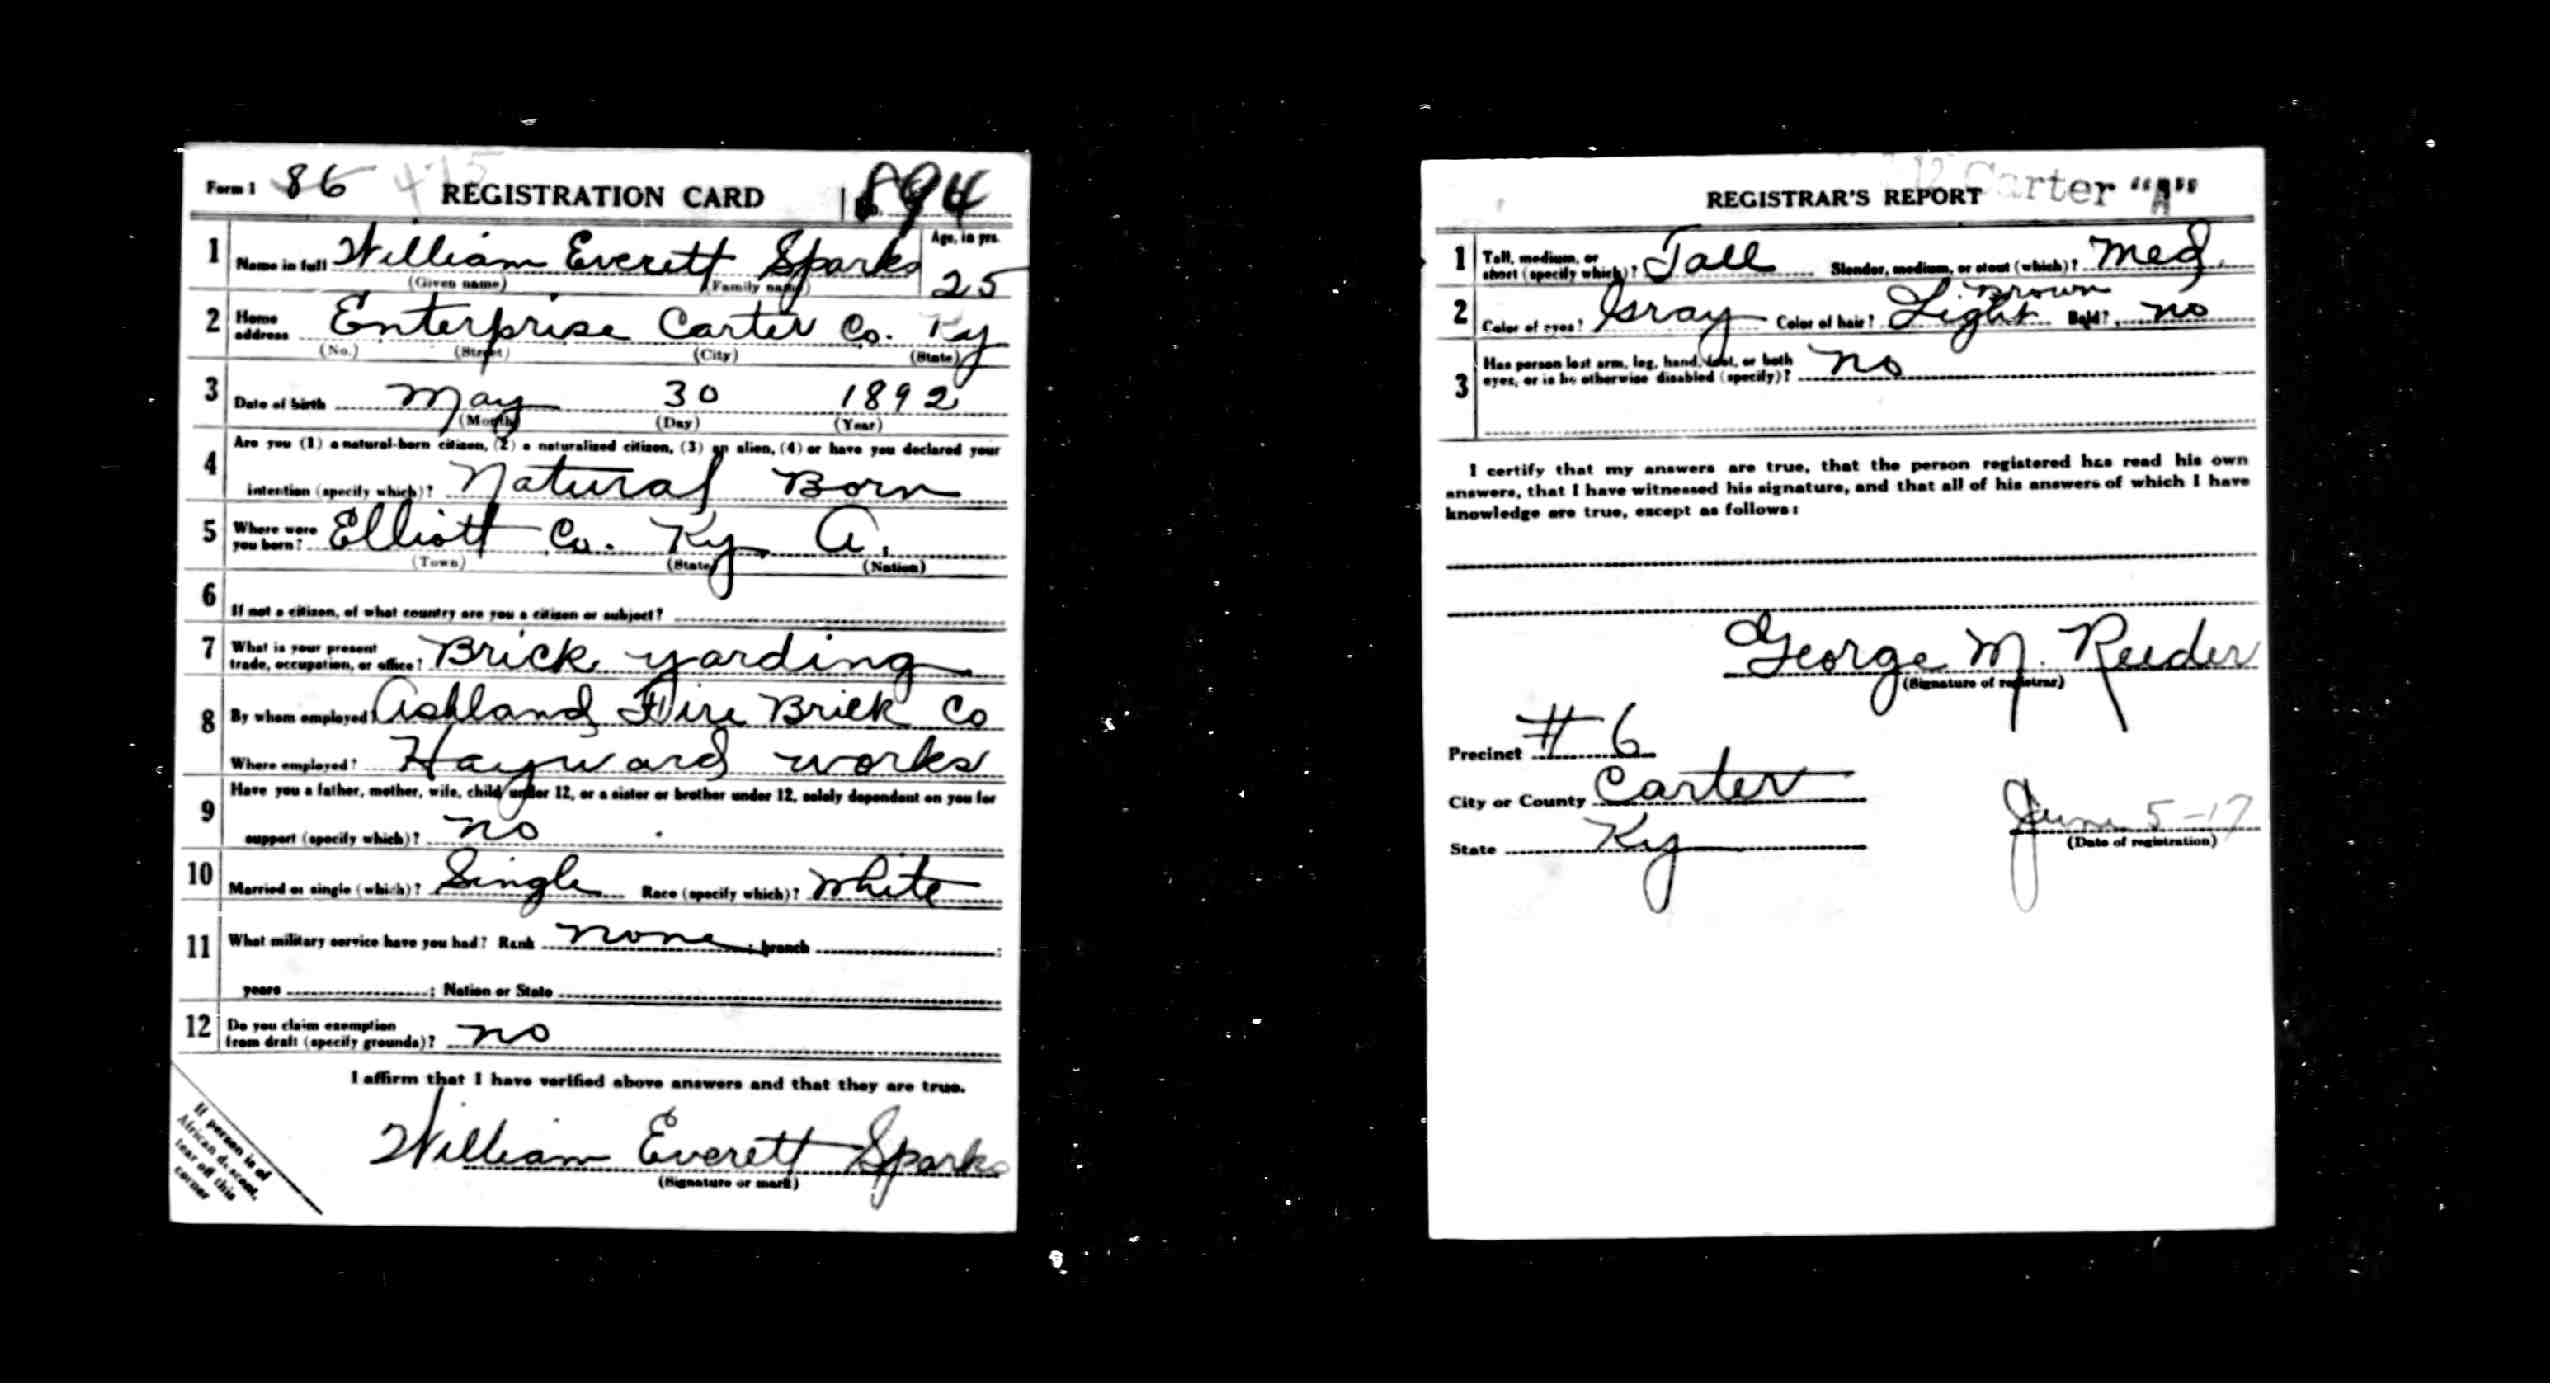 Form 1 86 475 REGISTRATION CARD No. 894
1 Name in full William Everett Sparks Age, in yrs. 25
(Given name) (Family name)
2 Home address Enterprise Carter Co. Ky
(No.) (Street) (City) (State)
3 Date of birth May 30 1892
(Month) (Day) (Year)
4 Are you (1) a natural-born citizen, (2) a naturalized citizen, (3) an alien, (4) or have you declared your
intention (specify which)? Natural Born
5 Where were you born? Elliott Co. Ky A.
(Town) (State) (Nation)
6 If not a citizen, of what country are you a citizen or subject?
7 What is your present trade, occupation, or office? Brick yarding
8 By whom employed? Ashland Fire Brick Co
Where employed? Hayward works
9 Have you a father, mother, wife, child under 12, or a sister or brother under 12, solely dependent on you for
support (specify which)? no
10 Married or single (which)? Single Race (specify which)? White
11 What military service have you had? Rank none ; branch ;
years ; Nation or State
12 Do you claim exemption from draft (specify grounds)? no
I affirm that I have verified above answers and that they are true.
William Everett Sparks
(Signature or mark)
If person is of
African descent,
tear off this
corner
REGISTRAR'S REPORT Carter "A"
1 Tall, medium, or short (specify which)? Tall Slender, medium, or stout (which)? Med.
2 Color of eyes? Gray Color of hair? Light Brown Bald? no
3 Has person lost arm, leg, hand, foot, or both
eyes, or is he otherwise disabled (specify)? no
I certify that my answers are true, that the person registered has read his own
answers, that I have witnessed his signature, and that all of his answers of which I have
knowledge are true, except as follows:
George M. Reeder
(Signature of registrar)
Precinct # 6
City or County Carter
State Ky
June 5-17
(Date of registration)